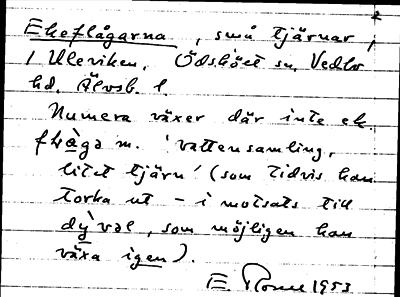 Ekeflågarna, små tjärnar,
i Uleviken, Ödsköct sn, Vedbo
hd. Älvsb. l.
Numera växer där inte ek.
flåga m. 'vattensamling,
litet tjärn' (som tidvis kan
torka ut – i motsats till
dývəl, som möjligen kan
växa igen).
E. 1953